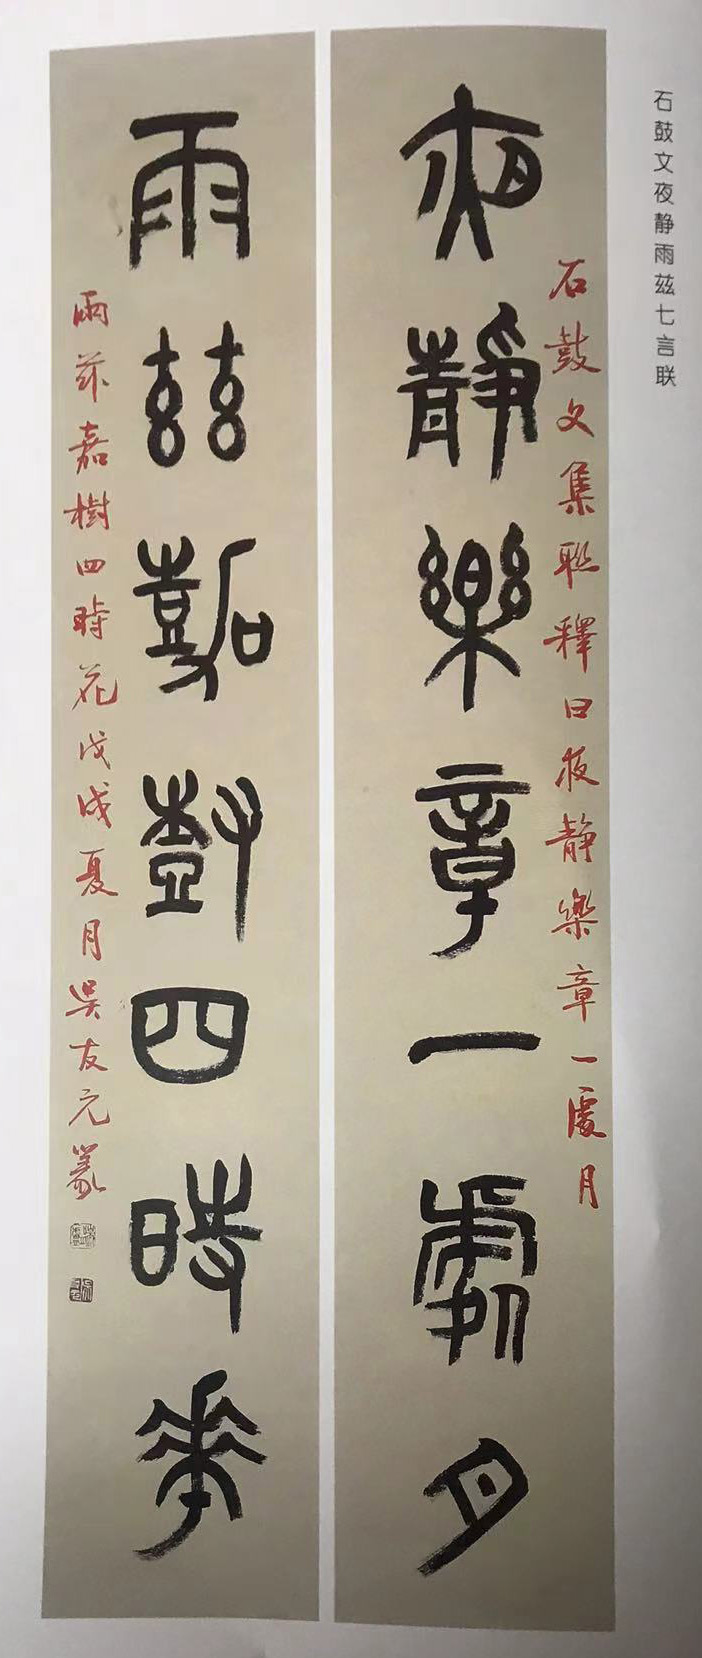 石鼓文夜静雨兹七言联
夜靜樂章一處月
石鼓文集联釋曰夜静樂章一處月
雨兹嘉樹四時華
雨兹嘉樹四時花戊戌夏月吴友元篆